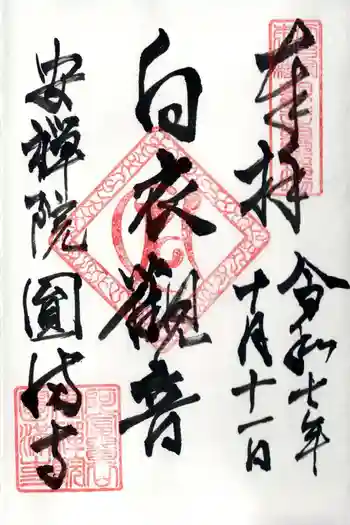 奉拝
令和七年
十月十一日
白衣觀音
安禅院圓満寺